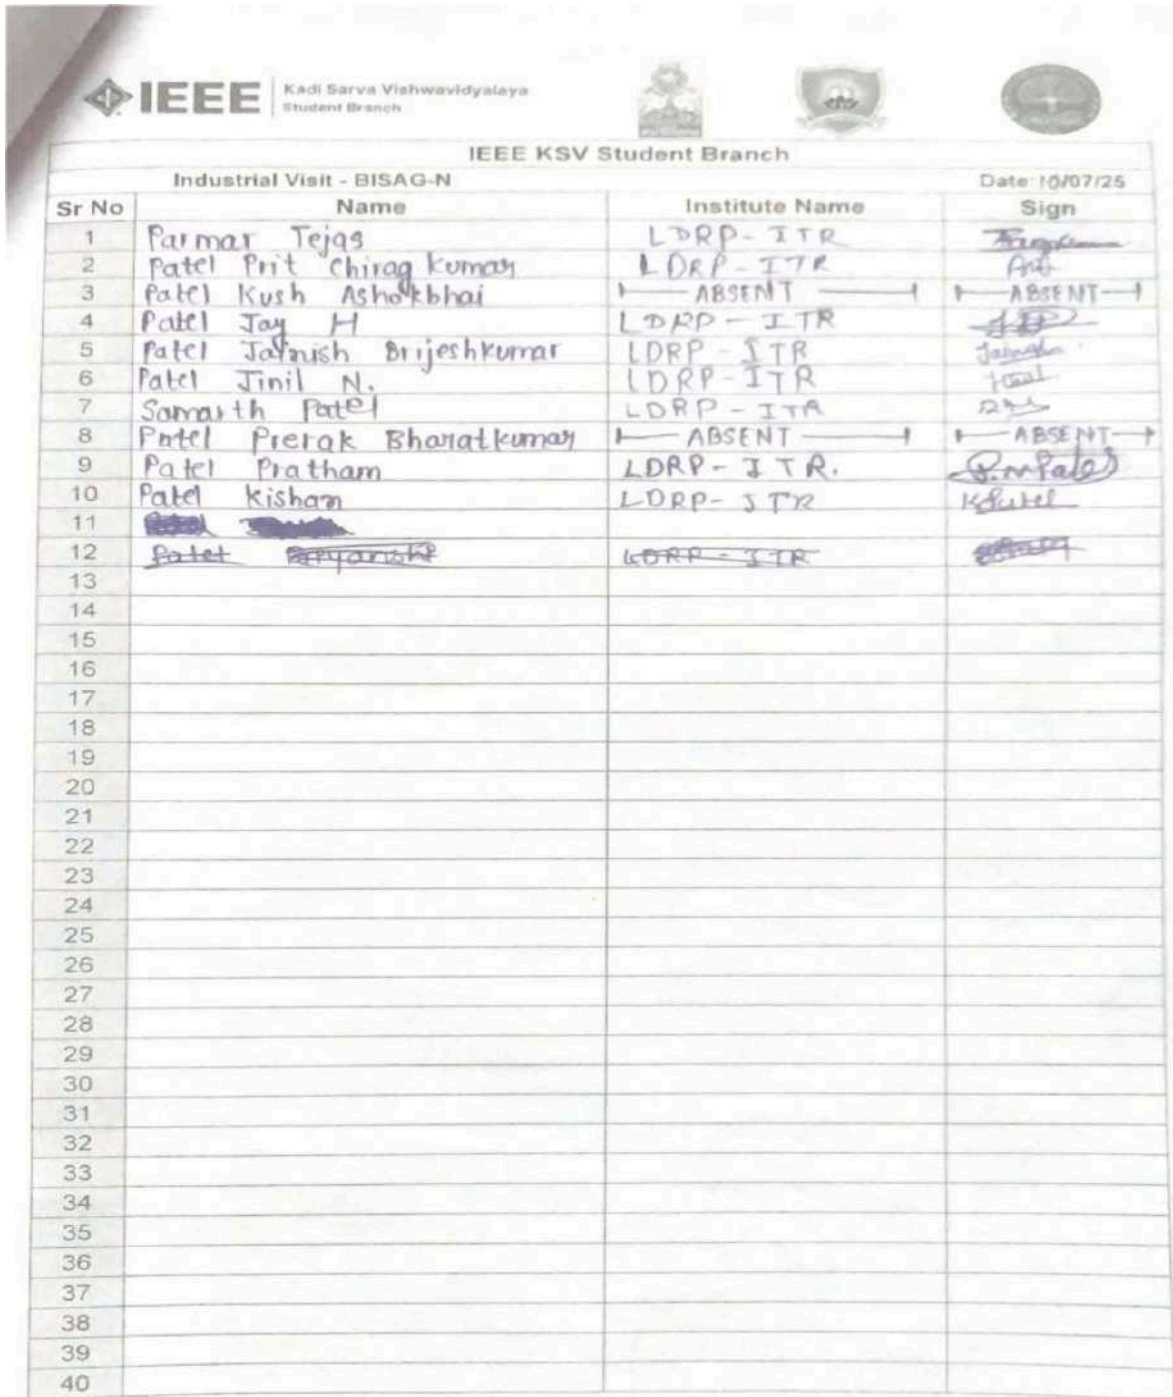 IEEE Kadi Sarva Vishwavidyalaya
Student Branch
IEEE KSV Student Branch
Industrial Visit - BISAG-N Date: 10/07/25
Sr No Name Institute Name Sign
1 Parmar Tejas LDRP-ITR
2 Patel Prit Chirag kumar LDRP-ITR
3 Patel Kush Ashokbhai ABSENT ABSENT
4 Patel Jay H LDRP-ITR
5 Patel Jainish Brijeshkumar LDRP-ITR
6 Patel Jinil N. LDRP-ITR
7 Samarth Patel LDRP-ITR
8 Patel Prerak Bharatkumar ABSENT ABSENT
9 Patel Pratham LDRP-ITR. P.M.Patel
10 Patel kishan LDRP-ITR KPatel
11
12 Patel Priyanshi LDRP-ITR
13
14
15
16
17
18
19
20
21
22
23
24
25
26
27
28
29
30
31
32
33
34
35
36
37
38
39
40